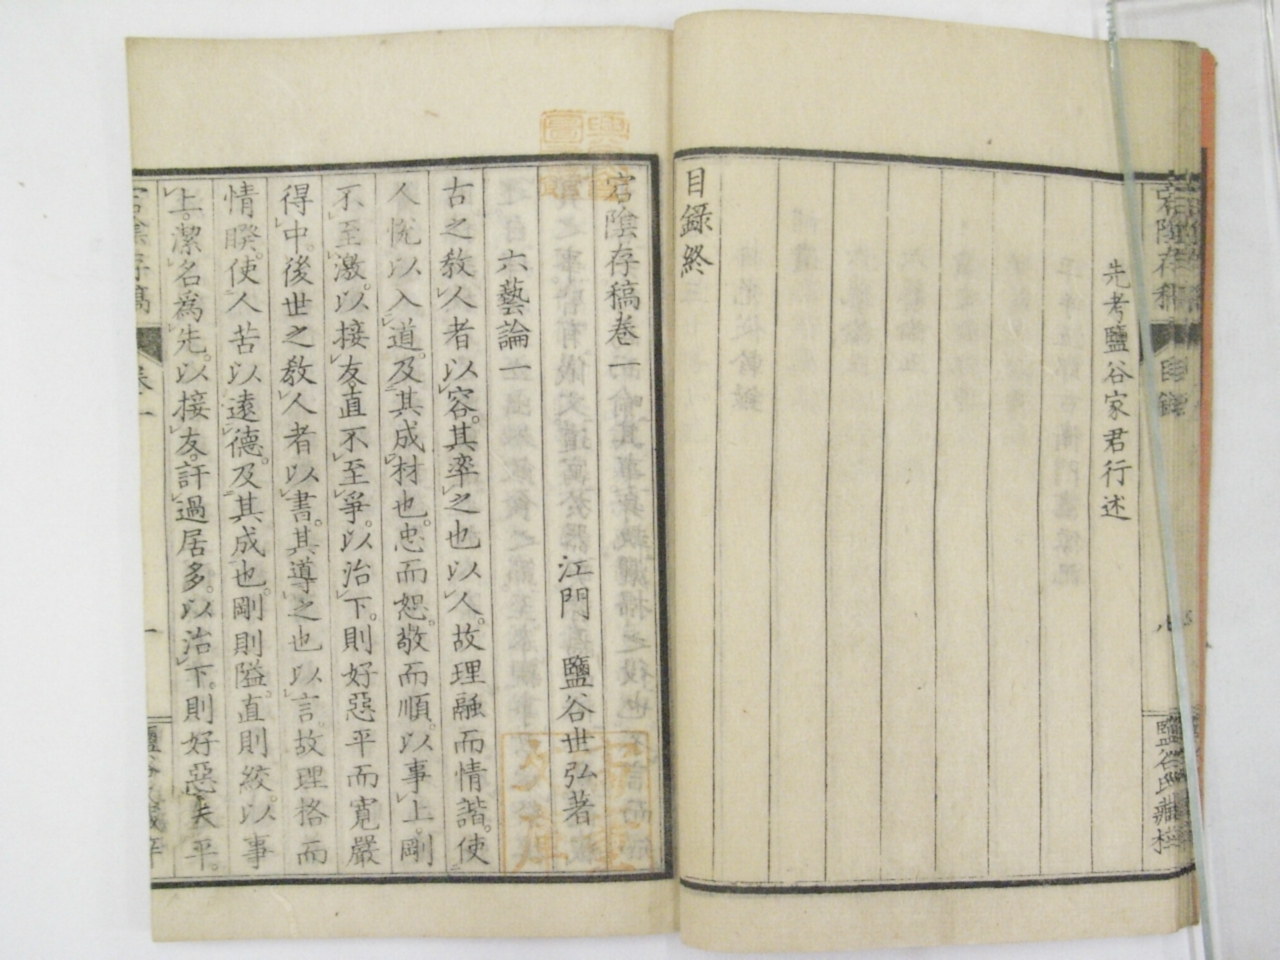 先考鹽谷家君行述
目錄終
宕陰存稿卷一
江門 鹽谷世弘著
六藝論一
古之教人者以容。其率之也以人。故理融而情諧。使
人悅以入道。及其成材也。忠而恕。敬而順。以事上。剛
不至激。以接友。直不至爭。以治下。則好惡平而寬嚴
得中。後世之教人者以書。其導之也以言。故理格而
情睽。使人苦以遠德。及其成也。剛則隘。直則絞。以事
上。潔名為先。以接友。訐過居多。以治下。則好惡失平。
宕陰存稿 目錄
鹽谷氏藏梓
宕陰存稿 卷一
一